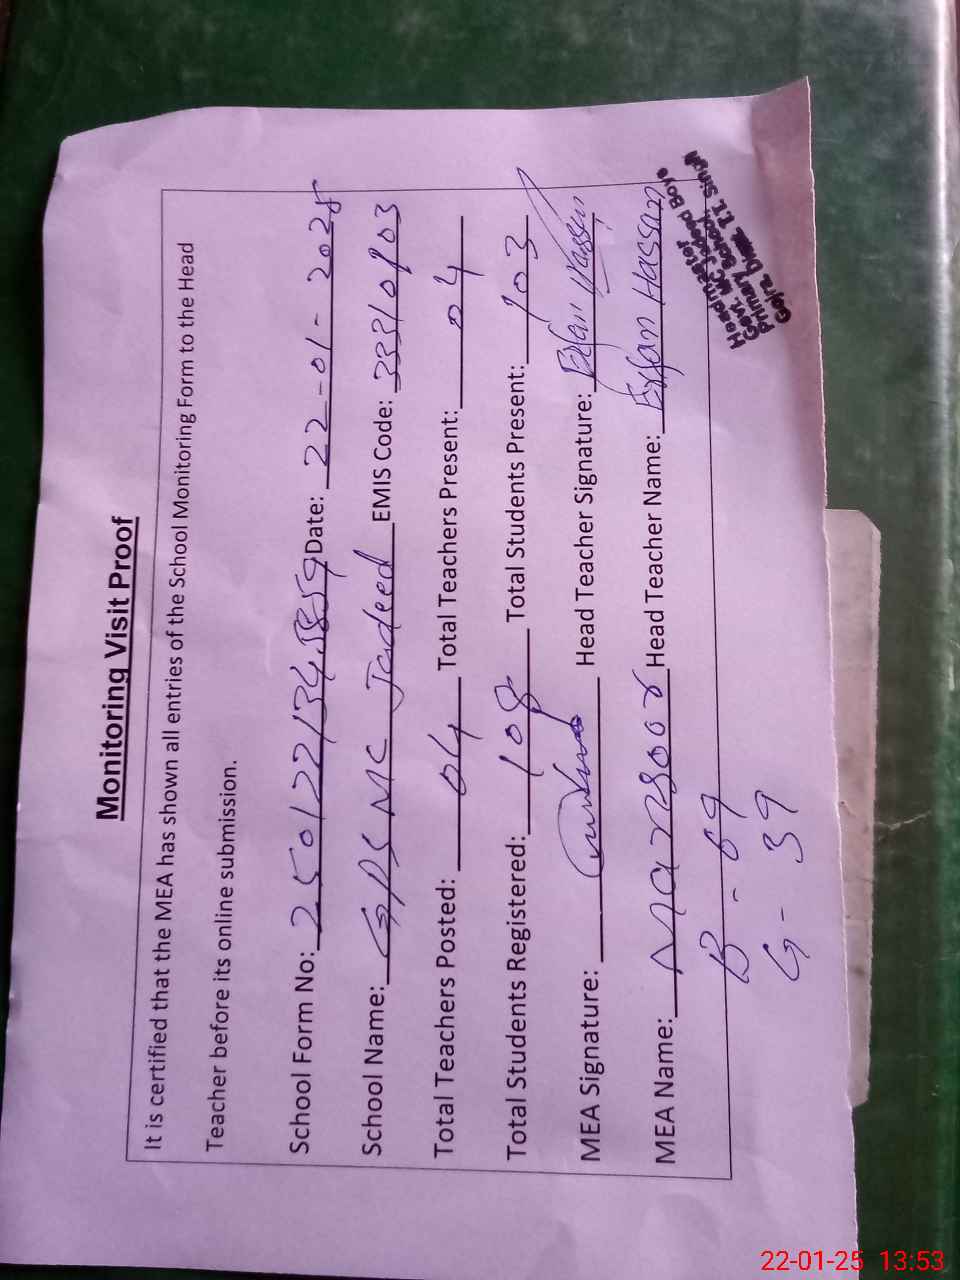 Monitoring Visit Proof
It is certified that the MEA has shown all entries of the School Monitoring Form to the Head
Teacher before its online submission.
School Form No: 2501221343859 Date: 22-01-2025
School Name: GPS MC Jadeed EMIS Code: 33310903
Total Teachers Posted: 04 Total Teachers Present: 04
Total Students Registered: 108 Total Students Present: 103
MEA Signature: Head Teacher Signature: Erfan Hassan
MEA Name: Manzoor Head Teacher Name: Erfan Hassan
B - 69
G - 39
Headmaster
Govt. MC Jadeed Boys
Primary School,
Gojra, Distt. T.T. Singh
22-01-25 13:53